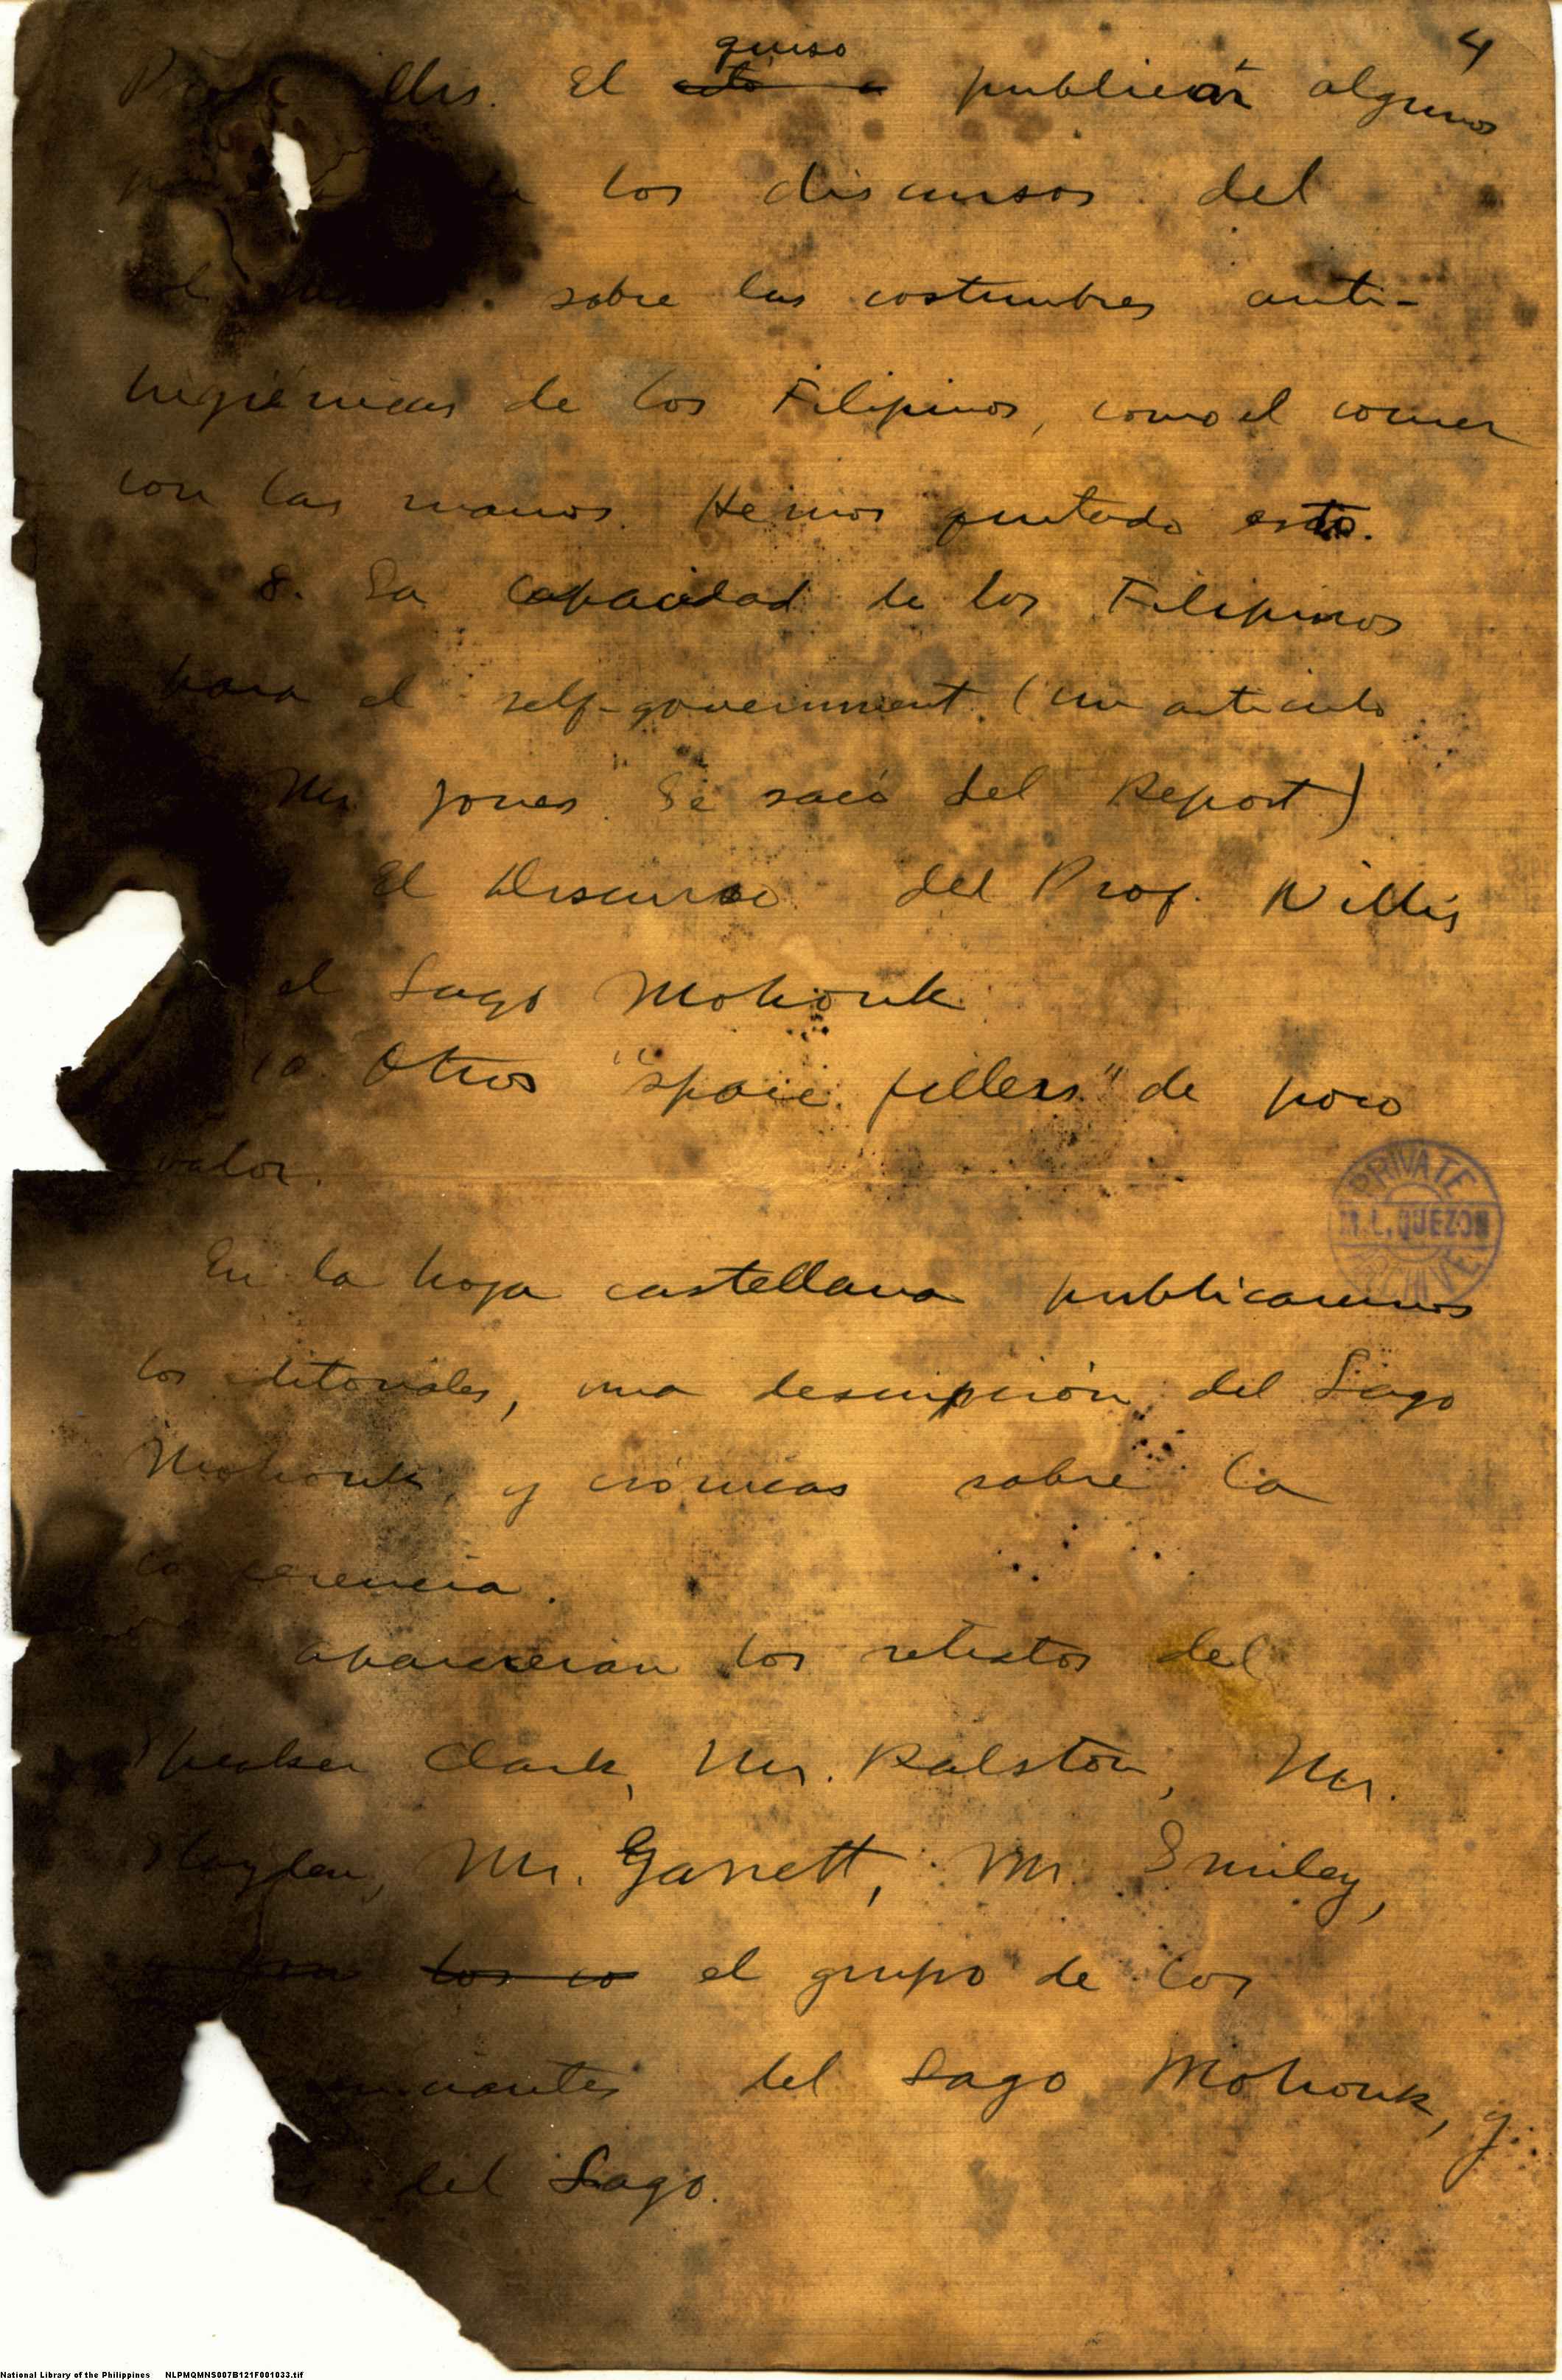 4
quiso
Prof. Willis. El publicar algunos
los discursos del
sobre las costumbres anti-
higiénicas de los Filipinos, como el comer
con las manos. Hemos quitado esto.
8. La capacidad de los Filipinos
para el self-government. (Un articulo
Mr Jones. Se sacó del Report)
El Discurso del Prof. Willis
el Lago Mohonk.
10. Otros "space fillers" de poco
valor.
PRIVATE
M.L. QUEZON
ARCHIVE
En la hoja castellana publicaremos
los editoriales, una descripción del Lago
Mohonk, y crónicas sobre la
conferencia.
aparecerán los retratos del
Speaker Clark, Mr. Ralston, Mr.
Slayden, Mr. Garrett, Mr. Smiley,
los co el grupo de los
del Lago Mohonk, y
del Lago.
National Library of the Philippines NLPMQMNS007B121F001033.tif